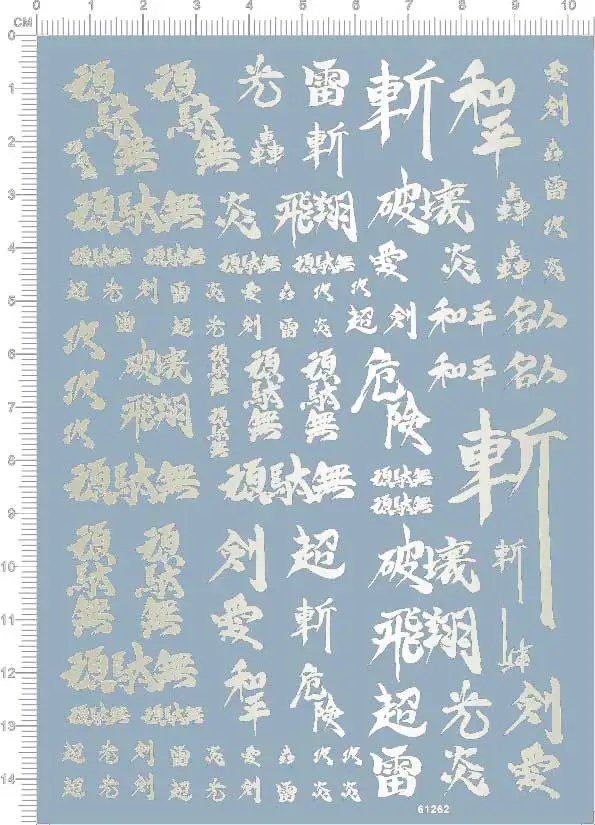 0 1 2 3 4 5 6 7 8 9 10
CM
頑駄無 頑駄無 光 雷 斬 和平 愛
創
頑駄無 轟 斬
頑駄無 炎 飛翔 破壊 轟 雷
頑駄無 頑駄無 頑駄無 頑駄無 愛 炎 轟 炎
超 光 創 雷 炎 愛
雷 超 光 創 雷 炎 超 創 和平 名人
破壊 頑駄無 頑駄無 頑駄無 危険 和平 名人
飛翔 頑駄無 斬
頑駄無 頑駄無 頑駄無
頑駄無
頑駄無 頑駄無 創 超 破壊 斬
愛 斬 飛翔
頑駄無 和平 危険 超 光 創
頑駄無 頑駄無
超 光 創 雷 炎 愛 雷 炎 愛
超 光 創 超 光 創 雷 炎 炎
61262
1
2
3
4
5
6
7
8
9
10
11
12
13
14